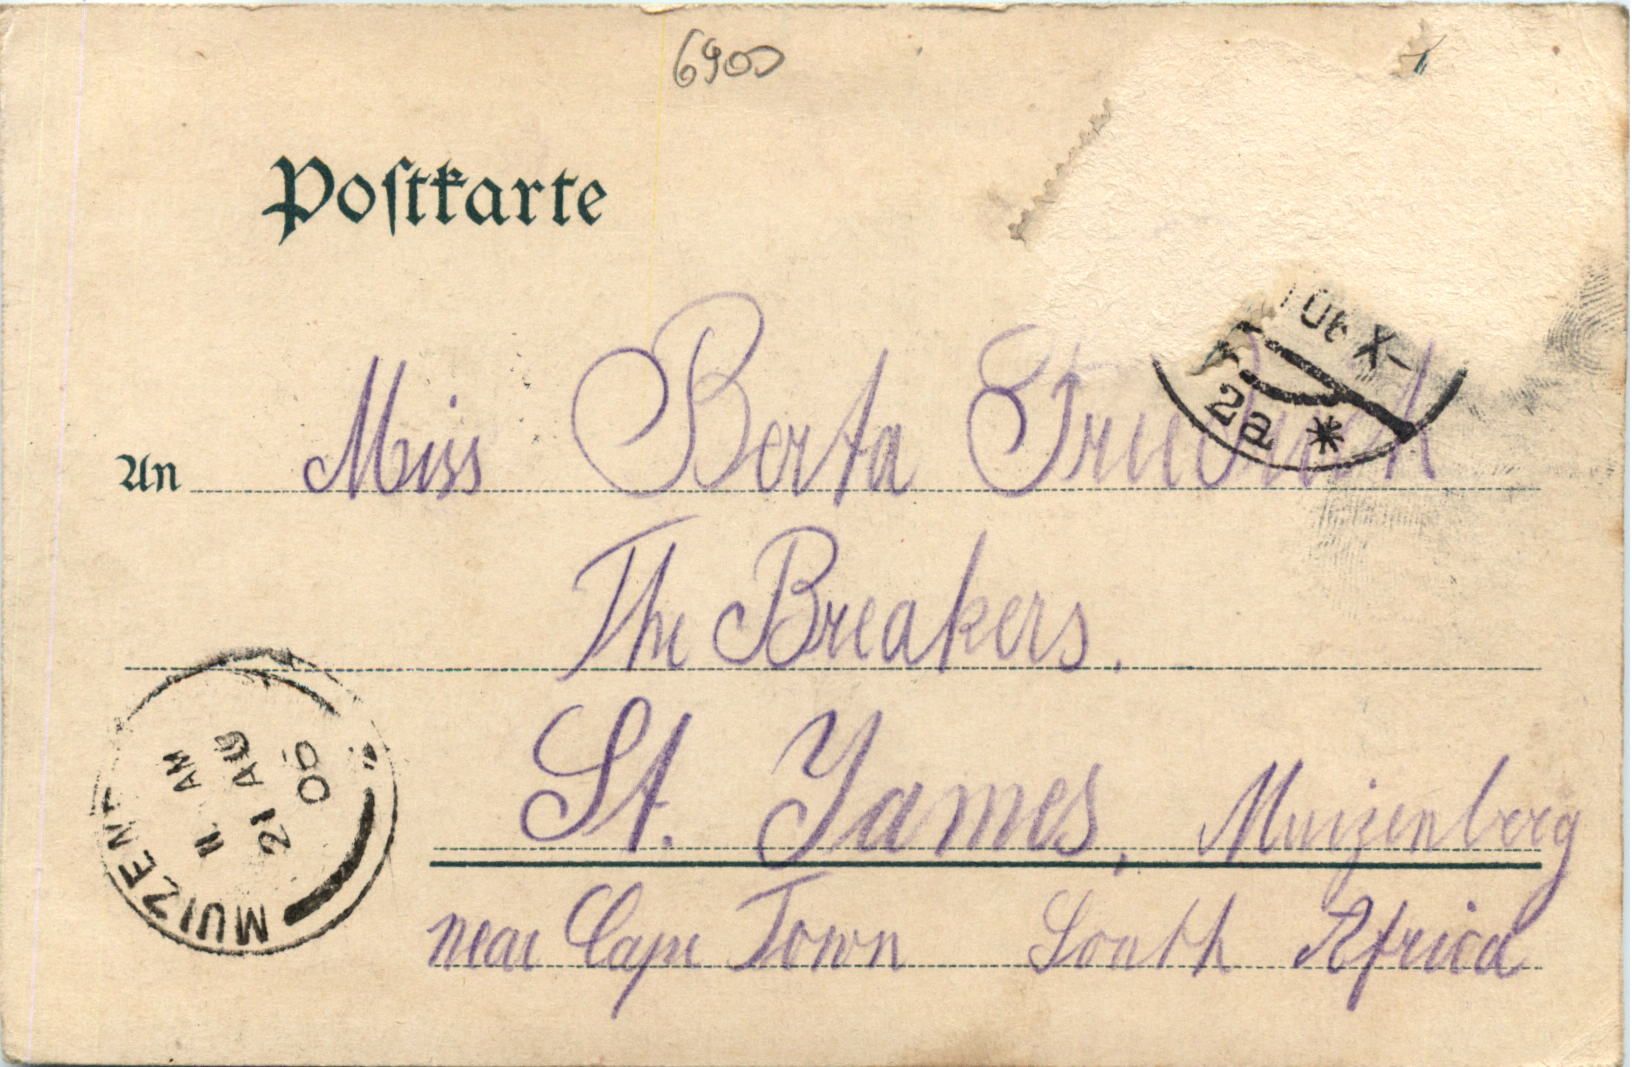 6900
Postkarte
An Miss Berta Friedrich
The Breakers.
St. James, Muizenberg
near Cape Town South Africa
2a *
MUIZENB
11 AM
21 AU